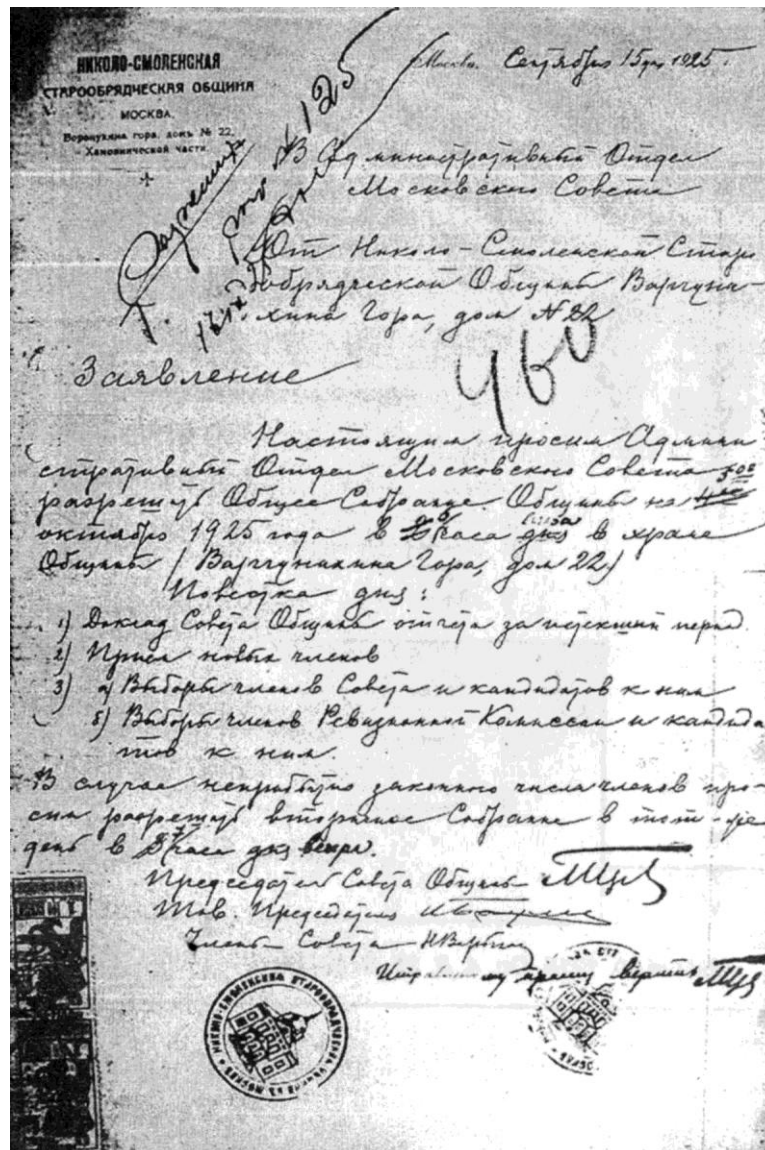 НИКОЛО-СМОЛЕНСКАЯ
СТАРООБРЯДЧЕСКАЯ ОБЩИНА
МОСКВА.
Воронухина гора, домъ № 22,
Хамовнической части.
Москва. Сентября 15 дня 1925 г.
Разрешить
№ 125
В Административный Отдел
Московского Совета
От Николо-Смоленской Старо
обрядческой Общины Варгуни-
хина Гора, дом № 22
460
Заявление
Настоящим просим Админи
стративный Отдел Московского Совета
разрешить Общее Собрание Общины на
октября 1925 года в часа в храме
Общины (Варгунихина Гора, дом 22)
Повестка дня:
1) Доклад Совета Общины отчета за истекший период
2) Прием новых членов
3) а) Выборы членов Совета и кандидатов к ним
б) Выборы членов Ревизионной Комиссии и кандида
тов к ним.
В случае неприбытия законного числа членов про-
сим разрешить вторичное Собрание в тот-же
день в часа вечера.
Председатель Совета Общины
Тов. Председателя
Члены Совета
верить
НИКОЛО-СМОЛЕНСКАЯ СТАРООБРЯДЧЕСКАЯ ОБЩИНА ВЪ МОСКВѢ